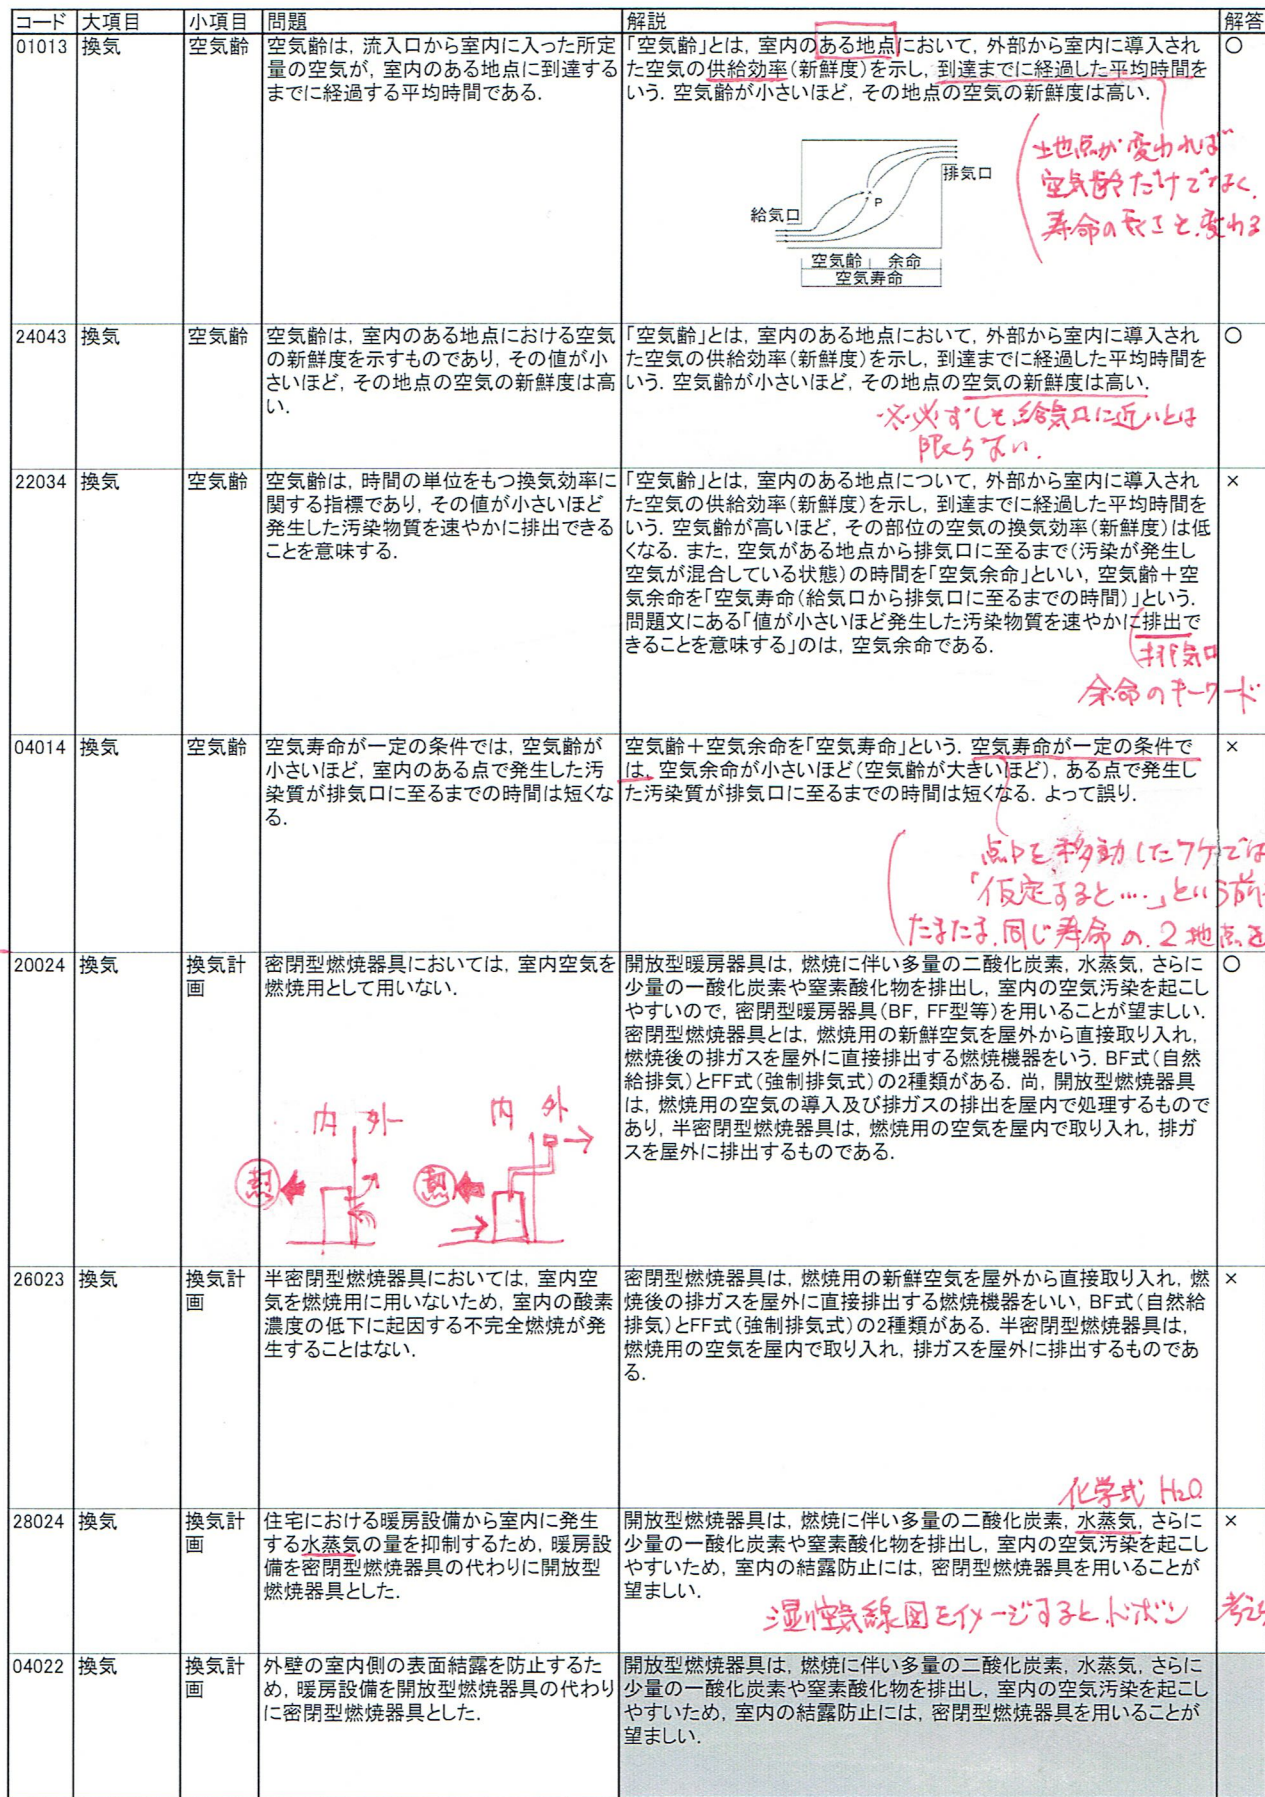 コード 大項目 小項目 問題 解説 解答
01013 換気 空気齢
空気齢は, 流入口から室内に入った所定
量の空気が, 室内のある地点に到達する
までに経過する平均時間である.
「空気齢」とは, 室内のある地点において, 外部から室内に導入され
た空気の供給効率(新鮮度)を示し, 到達までに経過した平均時間を
いう. 空気齢が小さいほど, その地点の空気の新鮮度は高い.
○
給気口
P
排気口
空気齢 余命
空気寿命
地点が変われば
空気齢だけでなく
寿命の長さも変わる
24043 換気 空気齢
空気齢は, 室内のある地点における空気
の新鮮度を示すものであり, その値が小
さいほど, その地点の空気の新鮮度は高
い.
「空気齢」とは, 室内のある地点において, 外部から室内に導入され
た空気の供給効率(新鮮度)を示し, 到達までに経過した平均時間を
いう. 空気齢が小さいほど, その地点の空気の新鮮度は高い.
○
※必ずしも給気口に近いとは
限らない.
22034 換気 空気齢
空気齢は, 時間の単位をもつ換気効率に
関する指標であり, その値が小さいほど
発生した汚染物質を速やかに排出できる
ことを意味する.
「空気齢」とは, 室内のある地点について, 外部から室内に導入され
た空気の供給効率(新鮮度)を示し, 到達までに経過した平均時間を
いう. 空気齢が高いほど, その部位の空気の換気効率(新鮮度)は低
くなる. また, 空気がある地点から排気口に至るまで(汚染が発生し
空気が混合している状態)の時間を「空気余命」といい, 空気齢+空
気余命を「空気寿命(給気口から排気口に至るまでの時間)」という.
問題文にある「値が小さいほど発生した汚染物質を速やかに排出で
きることを意味する」のは, 空気余命である.
×
排気口
余命のキーワード
04014 換気 空気齢
空気寿命が一定の条件では, 空気齢が
小さいほど, 室内のある点で発生した汚
染質が排気口に至るまでの時間は短くな
る.
空気齢+空気余命を「空気寿命」という. 空気寿命が一定の条件で
は, 空気余命が小さいほど(空気齢が大きいほど), ある点で発生し
た汚染質が排気口に至るまでの時間は短くなる. よって誤り.
×
点Pを移動したワケでは
「仮定すると…」という前
たまたま.同じ寿命の.2地点を
20024 換気 換気計
画
密閉型燃焼器具においては, 室内空気を
燃焼用として用いない.
開放型暖房器具は, 燃焼に伴い多量の二酸化炭素, 水蒸気, さらに
少量の一酸化炭素や窒素酸化物を排出し, 室内の空気汚染を起こし
やすいので, 密閉型暖房器具(BF, FF型等)を用いることが望ましい.
密閉型燃焼器具とは, 燃焼用の新鮮空気を屋外から直接取り入れ,
燃焼後の排ガスを屋外に直接排出する燃焼機器をいう. BF式(自然
給排気)とFF式(強制排気式)の2種類がある. 尚, 開放型燃焼器具
は, 燃焼用の空気の導入及び排ガスの排出を屋内で処理するもので
あり, 半密閉型燃焼器具は, 燃焼用の空気を屋内で取り入れ, 排ガ
スを屋外に排出するものである.
○
内 外 内 外
熱 熱
26023 換気 換気計
画
半密閉型燃焼器具においては, 室内空
気を燃焼用に用いないため, 室内の酸素
濃度の低下に起因する不完全燃焼が発
生することはない.
密閉型燃焼器具は, 燃焼用の新鮮空気を屋外から直接取り入れ, 燃
焼後の排ガスを屋外に直接排出する燃焼機器をいい, BF式(自然給
排気)とFF式(強制排気式)の2種類がある. 半密閉型燃焼器具は,
燃焼用の空気を屋内で取り入れ, 排ガスを屋外に排出するものであ
る.
×
化学式 H₂O
28024 換気 換気計
画
住宅における暖房設備から室内に発生
する水蒸気の量を抑制するため, 暖房設
備を密閉型燃焼器具の代わりに開放型
燃焼器具とした.
開放型燃焼器具は, 燃焼に伴い多量の二酸化炭素, 水蒸気, さらに
少量の一酸化炭素や窒素酸化物を排出し, 室内の空気汚染を起こし
やすいため, 室内の結露防止には, 密閉型燃焼器具を用いることが
望ましい.
×
湿り空気線図をイメージするとドボン
04022 換気 換気計
画
外壁の室内側の表面結露を防止するた
め, 暖房設備を開放型燃焼器具の代わり
に密閉型燃焼器具とした.
開放型燃焼器具は, 燃焼に伴い多量の二酸化炭素, 水蒸気, さらに
少量の一酸化炭素や窒素酸化物を排出し, 室内の空気汚染を起こし
やすいため, 室内の結露防止には, 密閉型燃焼器具を用いることが
望ましい.